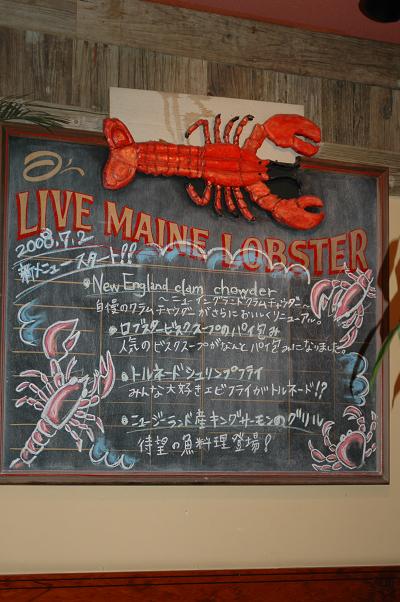 LIVE MAINE LOBSTER
2008.7.2
新メニュースタート!!
•New England clam chowder
〜ニューイングランドクラムチャウダー〜
自慢のクラムチャウダーがさらにおいしくリニューアル。
•ロブスタービスクスープのパイ包み
人気のビスクスープがなんとパイ包みになりました。
•トルネードシュリンプフライ
みんな大好きエビフライがトルネード!?
•ニュージーランド産キングサーモンのグリル
待望の魚料理登場!